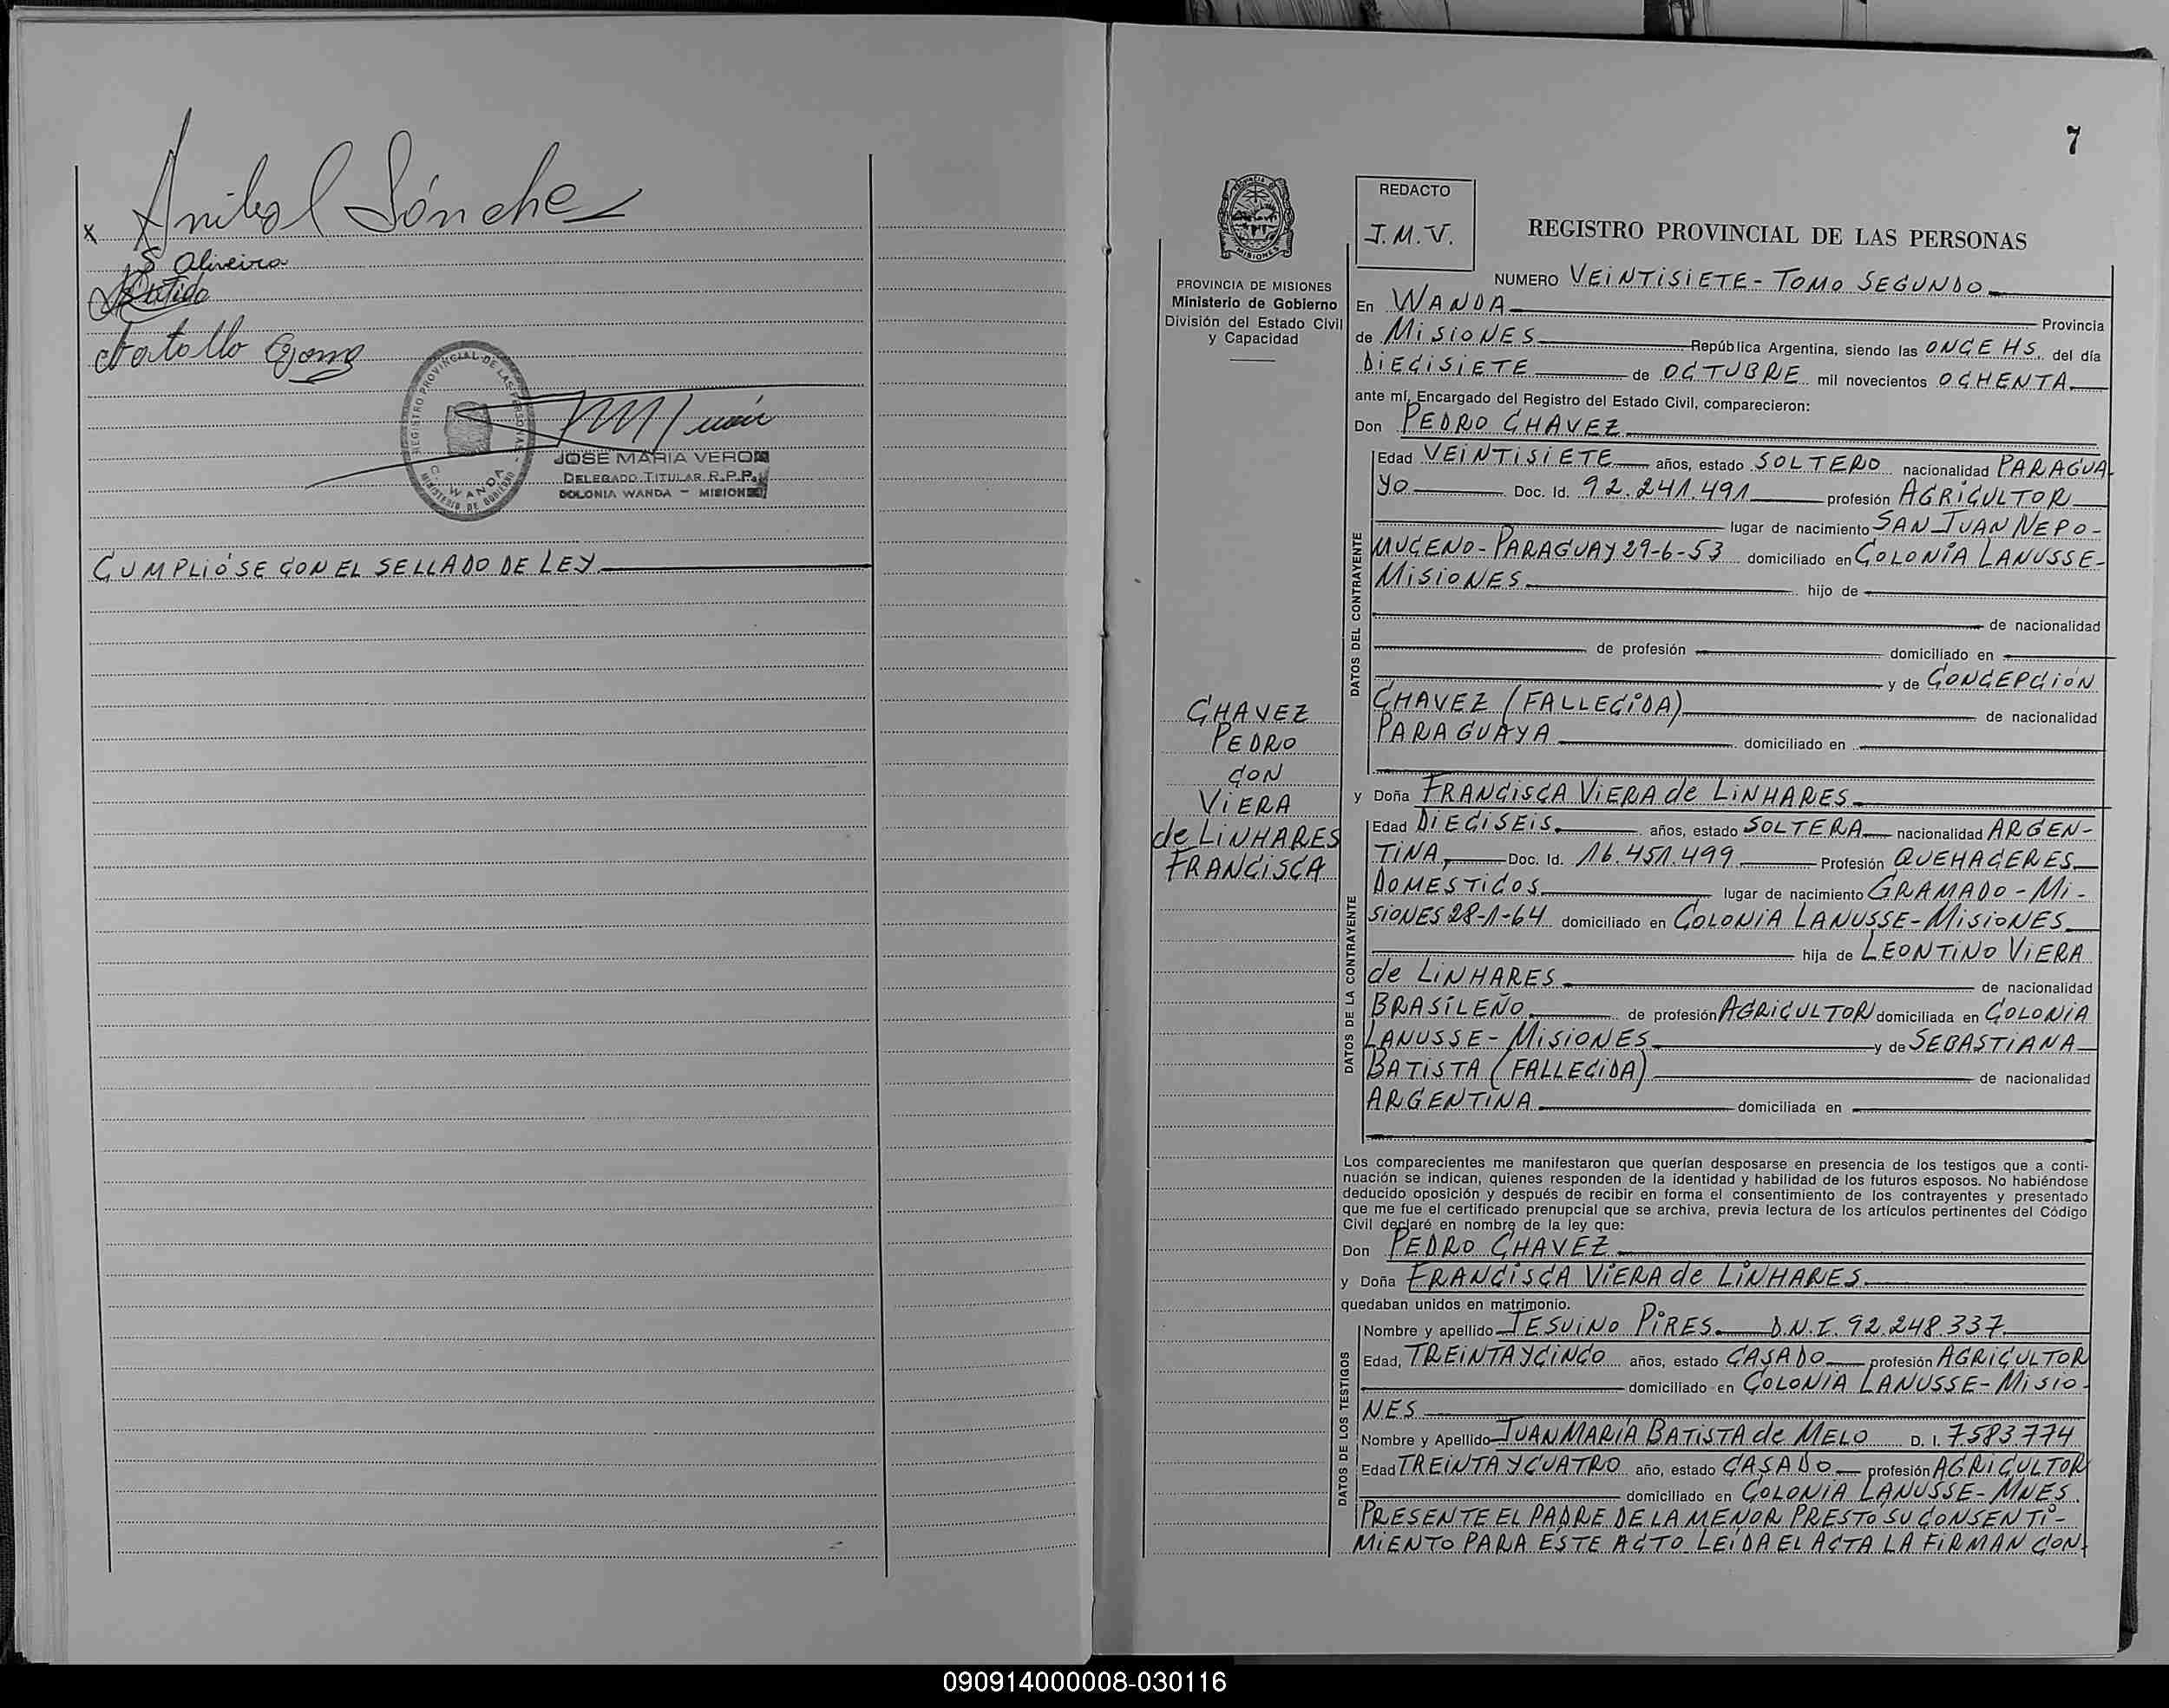 x Anibal Sánchez
S Oliveira
JOSE MARIA VERON
DELEGADO TITULAR R.P.P.
COLONIA WANDA - MISIONES
REGISTRO PROVINCIAL DE LAS PERSONAS -
C. WANDA
MINISTERIO DE GOBIERNO
CUMPLIÓSE CON EL SELLADO DE LEY.
7
PROVINCIA DE
MISIONES
PROVINCIA DE MISIONES
Ministerio de Gobierno
División del Estado Civil
y Capacidad
CHAVEZ
PEDRO
CON
VIERA
de LINHARES
FRANCISCA
REDACTO
J.M.V.
REGISTRO PROVINCIAL DE LAS PERSONAS
NUMERO VEINTISIETE - TOMO SEGUNDO
En WANDA Provincia
de MISIONES República Argentina, siendo las ONCE HS. del día
DIECISIETE de OCTUBRE mil novecientos OCHENTA
ante mí, Encargado del Registro del Estado Civil, comparecieron:
Don PEDRO CHAVEZ
DATOS DEL CONTRAYENTE
Edad VEINTISIETE años, estado SOLTERO nacionalidad PARAGUA-
YO Doc. Id. 92.241.491 profesión AGRICULTOR
lugar de nacimiento SAN JUAN NEPO-
MUCENO - PARAGUAY 29-6-53 domiciliado en COLONIA LANUSSE-
MISIONES hijo de
de nacionalidad
de profesión domiciliado en
y de CONCEPCIÓN
CHAVEZ (FALLECIDA) de nacionalidad
PARAGUAYA domiciliado en
y Doña FRANCISCA VIERA de LINHARES
DATOS DE LA CONTRAYENTE
Edad DIECISEIS años, estado SOLTERA nacionalidad ARGEN-
TINA, Doc. Id. 16.451.499 Profesión QUEHACERES
DOMÉSTICOS lugar de nacimiento GRAMADO - MI-
SIONES 28-1-64 domiciliado en COLONIA LANUSSE - MISIONES
hija de LEONTINO VIERA
de LINHARES de nacionalidad
BRASILEÑO de profesión AGRICULTOR domiciliada en COLONIA
LANUSSE - MISIONES y de SEBASTIANA
BATISTA (FALLECIDA) de nacionalidad
ARGENTINA domiciliada en
Los comparecientes me manifestaron que querían desposarse en presencia de los testigos que a conti-
nuación se indican, quienes responden de la identidad y habilidad de los futuros esposos. No habiéndose
deducido oposición y después de recibir en forma el consentimiento de los contrayentes y presentado
que me fue el certificado prenupcial que se archiva, previa lectura de los artículos pertinentes del Código
Civil declaré en nombre de la ley que:
Don PEDRO CHAVEZ
y Doña FRANCISCA VIERA de LINHARES
quedaban unidos en matrimonio.
DATOS DE LOS TESTIGOS
Nombre y apellido JESUINO PIRES D.N.I. 92.248.337
Edad, TREINTA Y CINCO años, estado CASADO profesión AGRICULTOR
domiciliado en COLONIA LANUSSE - MISIO-
NES
Nombre y Apellido JUAN MARÍA BATISTA de MELO D. I. 7.583.774
Edad TREINTA Y CUATRO año, estado CASADO profesión AGRICULTOR
domiciliado en COLONIA LANUSSE - MNES.
PRESENTE EL PADRE DE LA MENOR PRESTO SU CONSENTI-
MIENTO PARA ÉSTE ACTO LEIDA EL ACTA LA FIRMAN CON
090914000008-030116